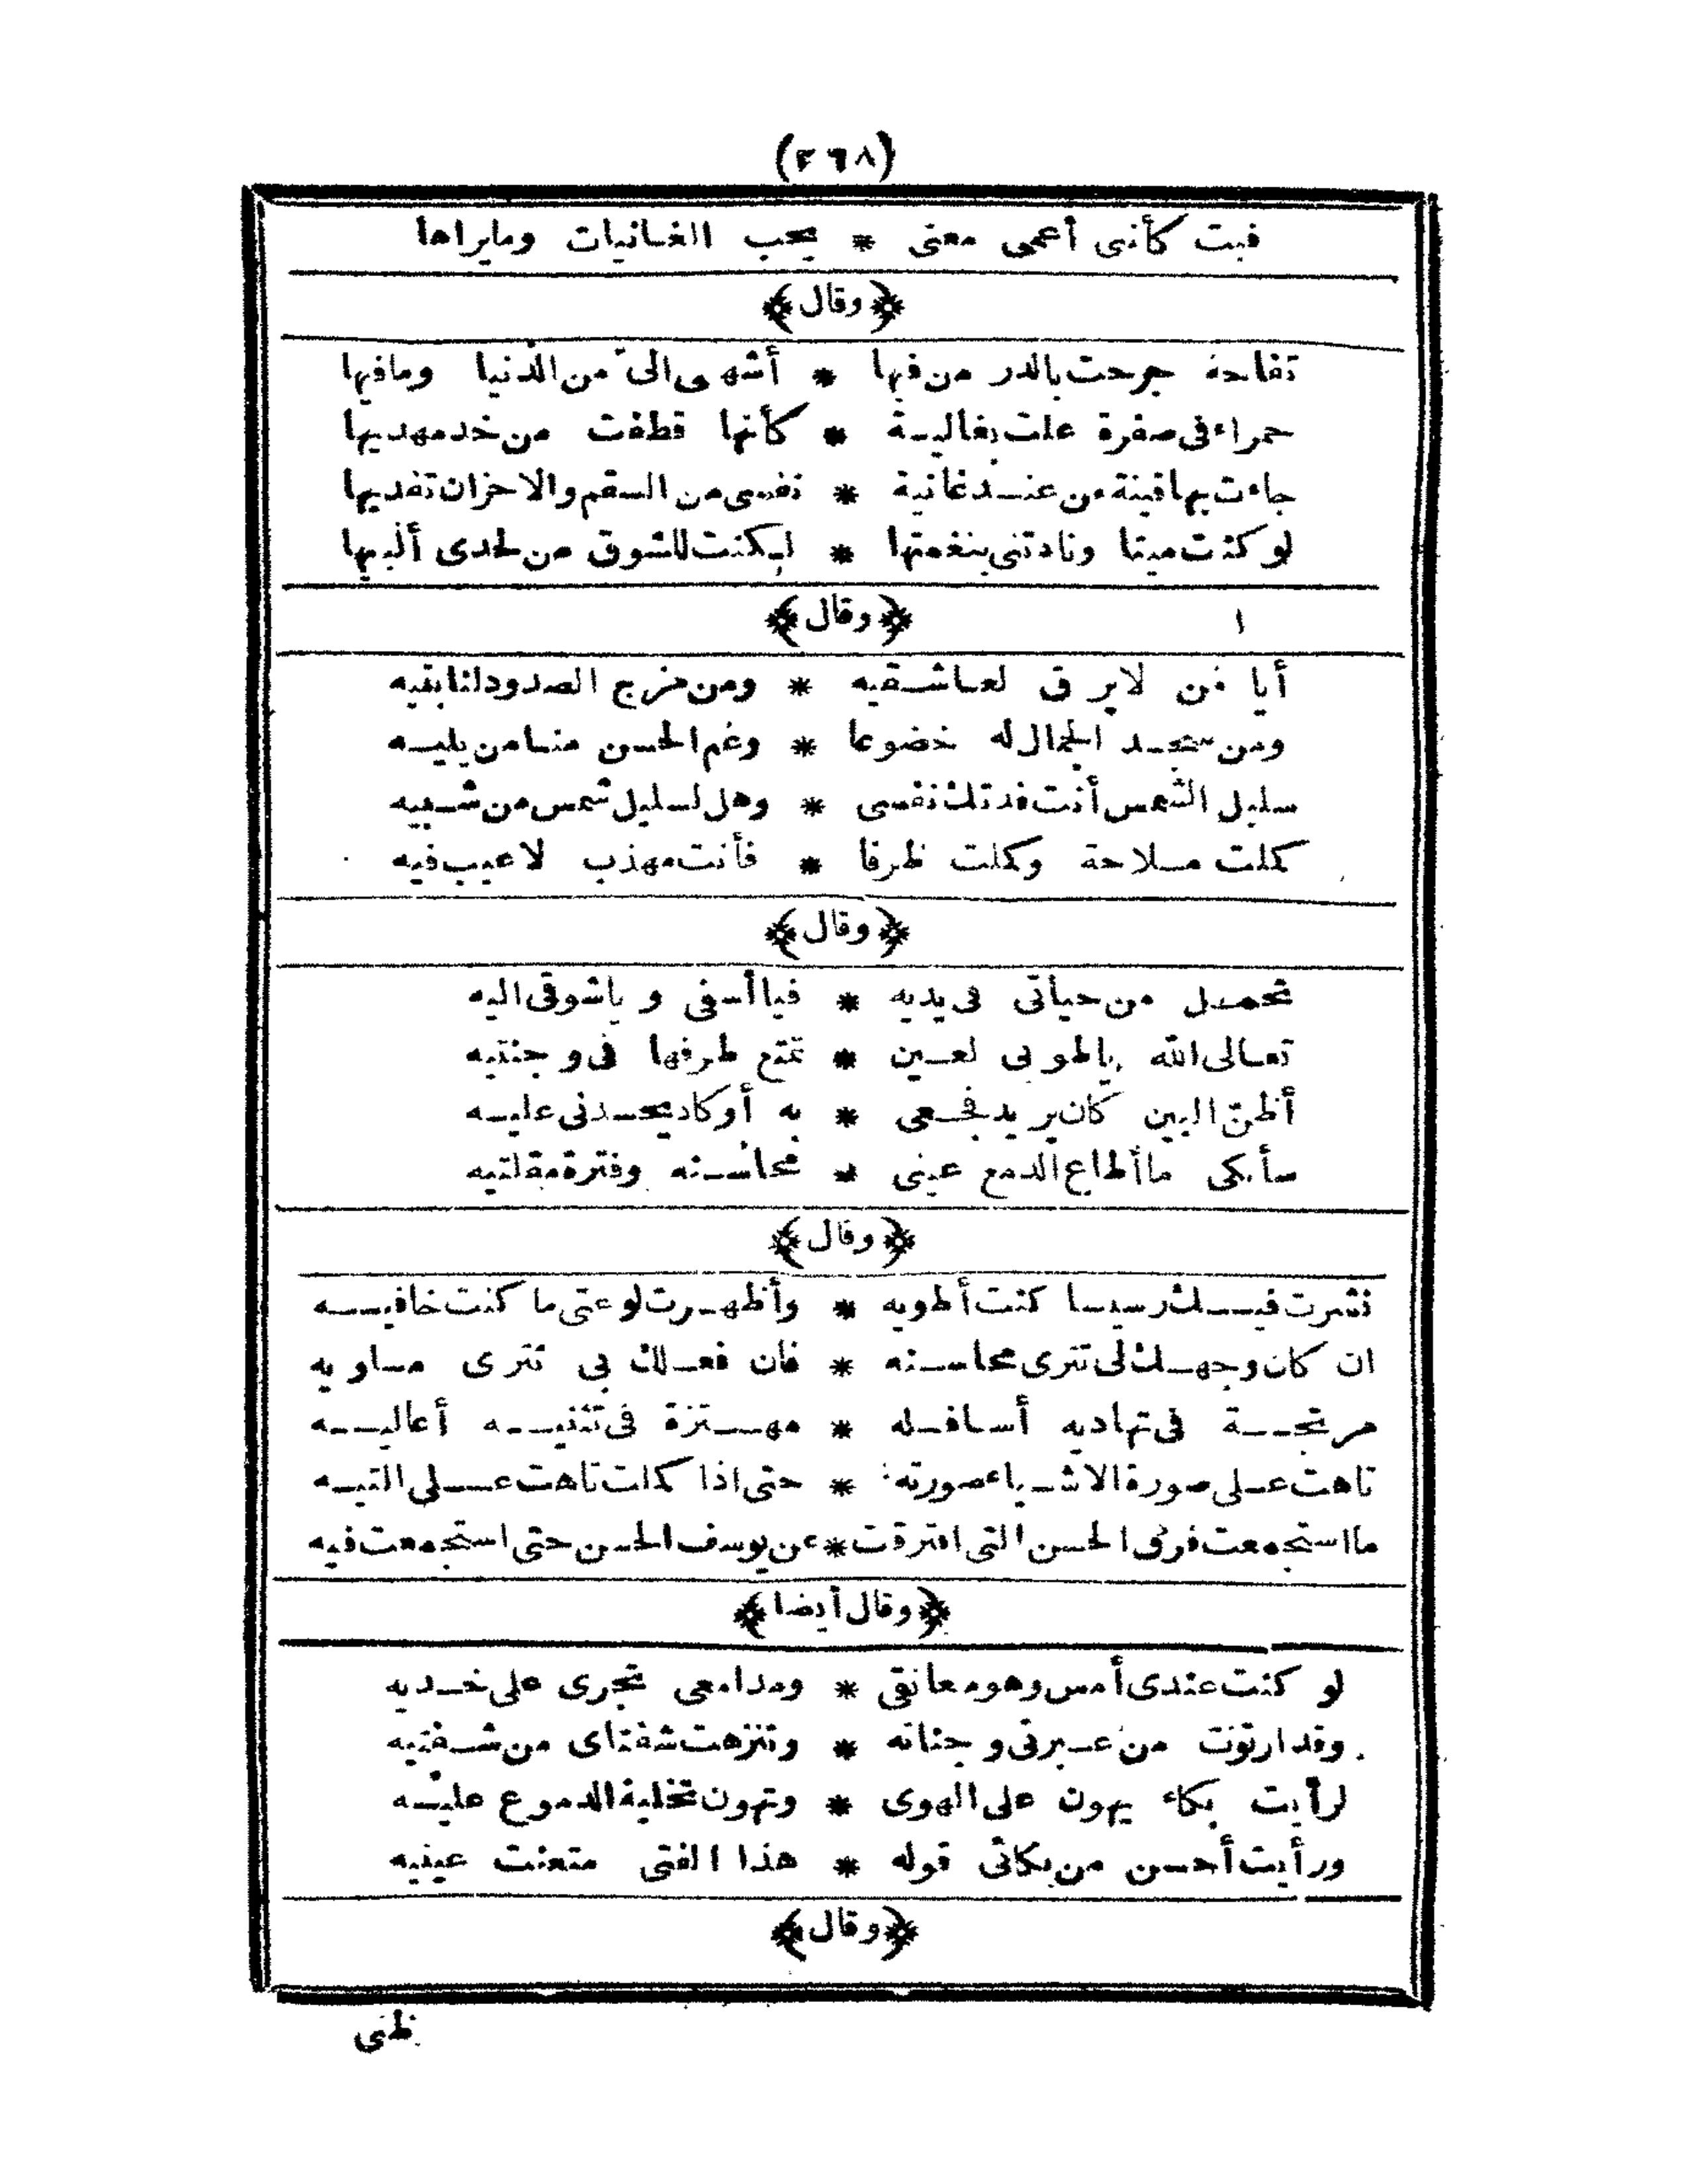 (٤٦٨)
فبت كأنى أعمى معنى * يحب الغانيات ومايراها
﴿وقال﴾
تفاحة جرحت بالدر من فيها * أشهى الىّ من الدنيا ومافيها
حمراء فى صفرة علت بغالية * كأنها قطفت من خد مهديها
جاءت بها قينة من عند غانية * نفسى من السقم والاحزان تفديها
لو كنت ميتا ونادتنى بنغمتها * لكنت للشوق من لحدى ألبيها
﴿وقال﴾
أيا من لايرق لعاشقيه * ومن مزج الصدود لنا بتيه
ومن سجد الجمال له خضوعا * وعم الحسن منا من يليه
سليل الشمس أنت فدتك نفسى * وهل لسليل شمس من شبيه
كملت ملاحة وكملت ظرفا * فأنت مهذب لاعيب فيه
﴿وقال﴾
تحمل من حياتى فى يديه * فيا أسفى وياشوقى اليه
تعالى الله ياطوبى لعين * تمتع طرفها فى وجنتيه
أظنّ البين كان يريد فجعى * به أو كاد يحسدنى عليه
سأبكى ماأطاع الدمع عينى * محاسنه وفترة مقلتيه
﴿وقال﴾
نشرت فيك رسيسا كنت أطويه * وأظهرت لوعتى ما كنت خافيه
ان كان وجهك لى تترى محاسنه * فان فعلك بى تترى مساويه
مرتجة فى تهاديه أسافله * مهتزة فى تثنيه أعاليه
تاهت على صورة الاشياء صورته * حتى اذا كملت تاهت على التيه
مااستجمعت فرق الحسن التى افترقت * عن يوسف الحسن حتى استجمعت فيه
﴿وقال أيضا﴾
لو كنت عندى أمس وهو معانقى * ومدامعى تجرى على خديه
وقد ارتوت من عبرتى وجناته * وتنزهت شفتاى من شفتيه
لرأيت بكاء يهون على الهوى * وتهون تخلية الدموع عليه
ورأيت أحسن من بكائى قوله * هذا الفتى متعنت عينيه
﴿وقال﴾
ظى